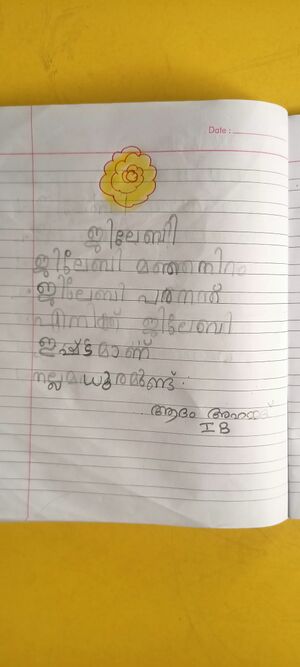 Date :
ജിലേബി
ജിലേബി മഞ്ഞനിറം
ജിലേബി പരന്നത്
എനിക്ക് ജിലേബി
ഇഷ്ട്ടമാണ്
നല്ലമധുരമുണ്ട് .
ആദം അഹമ്മദ്
I B